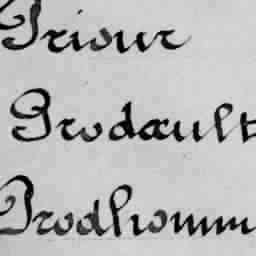 Priour
Prodault
Prodhomm